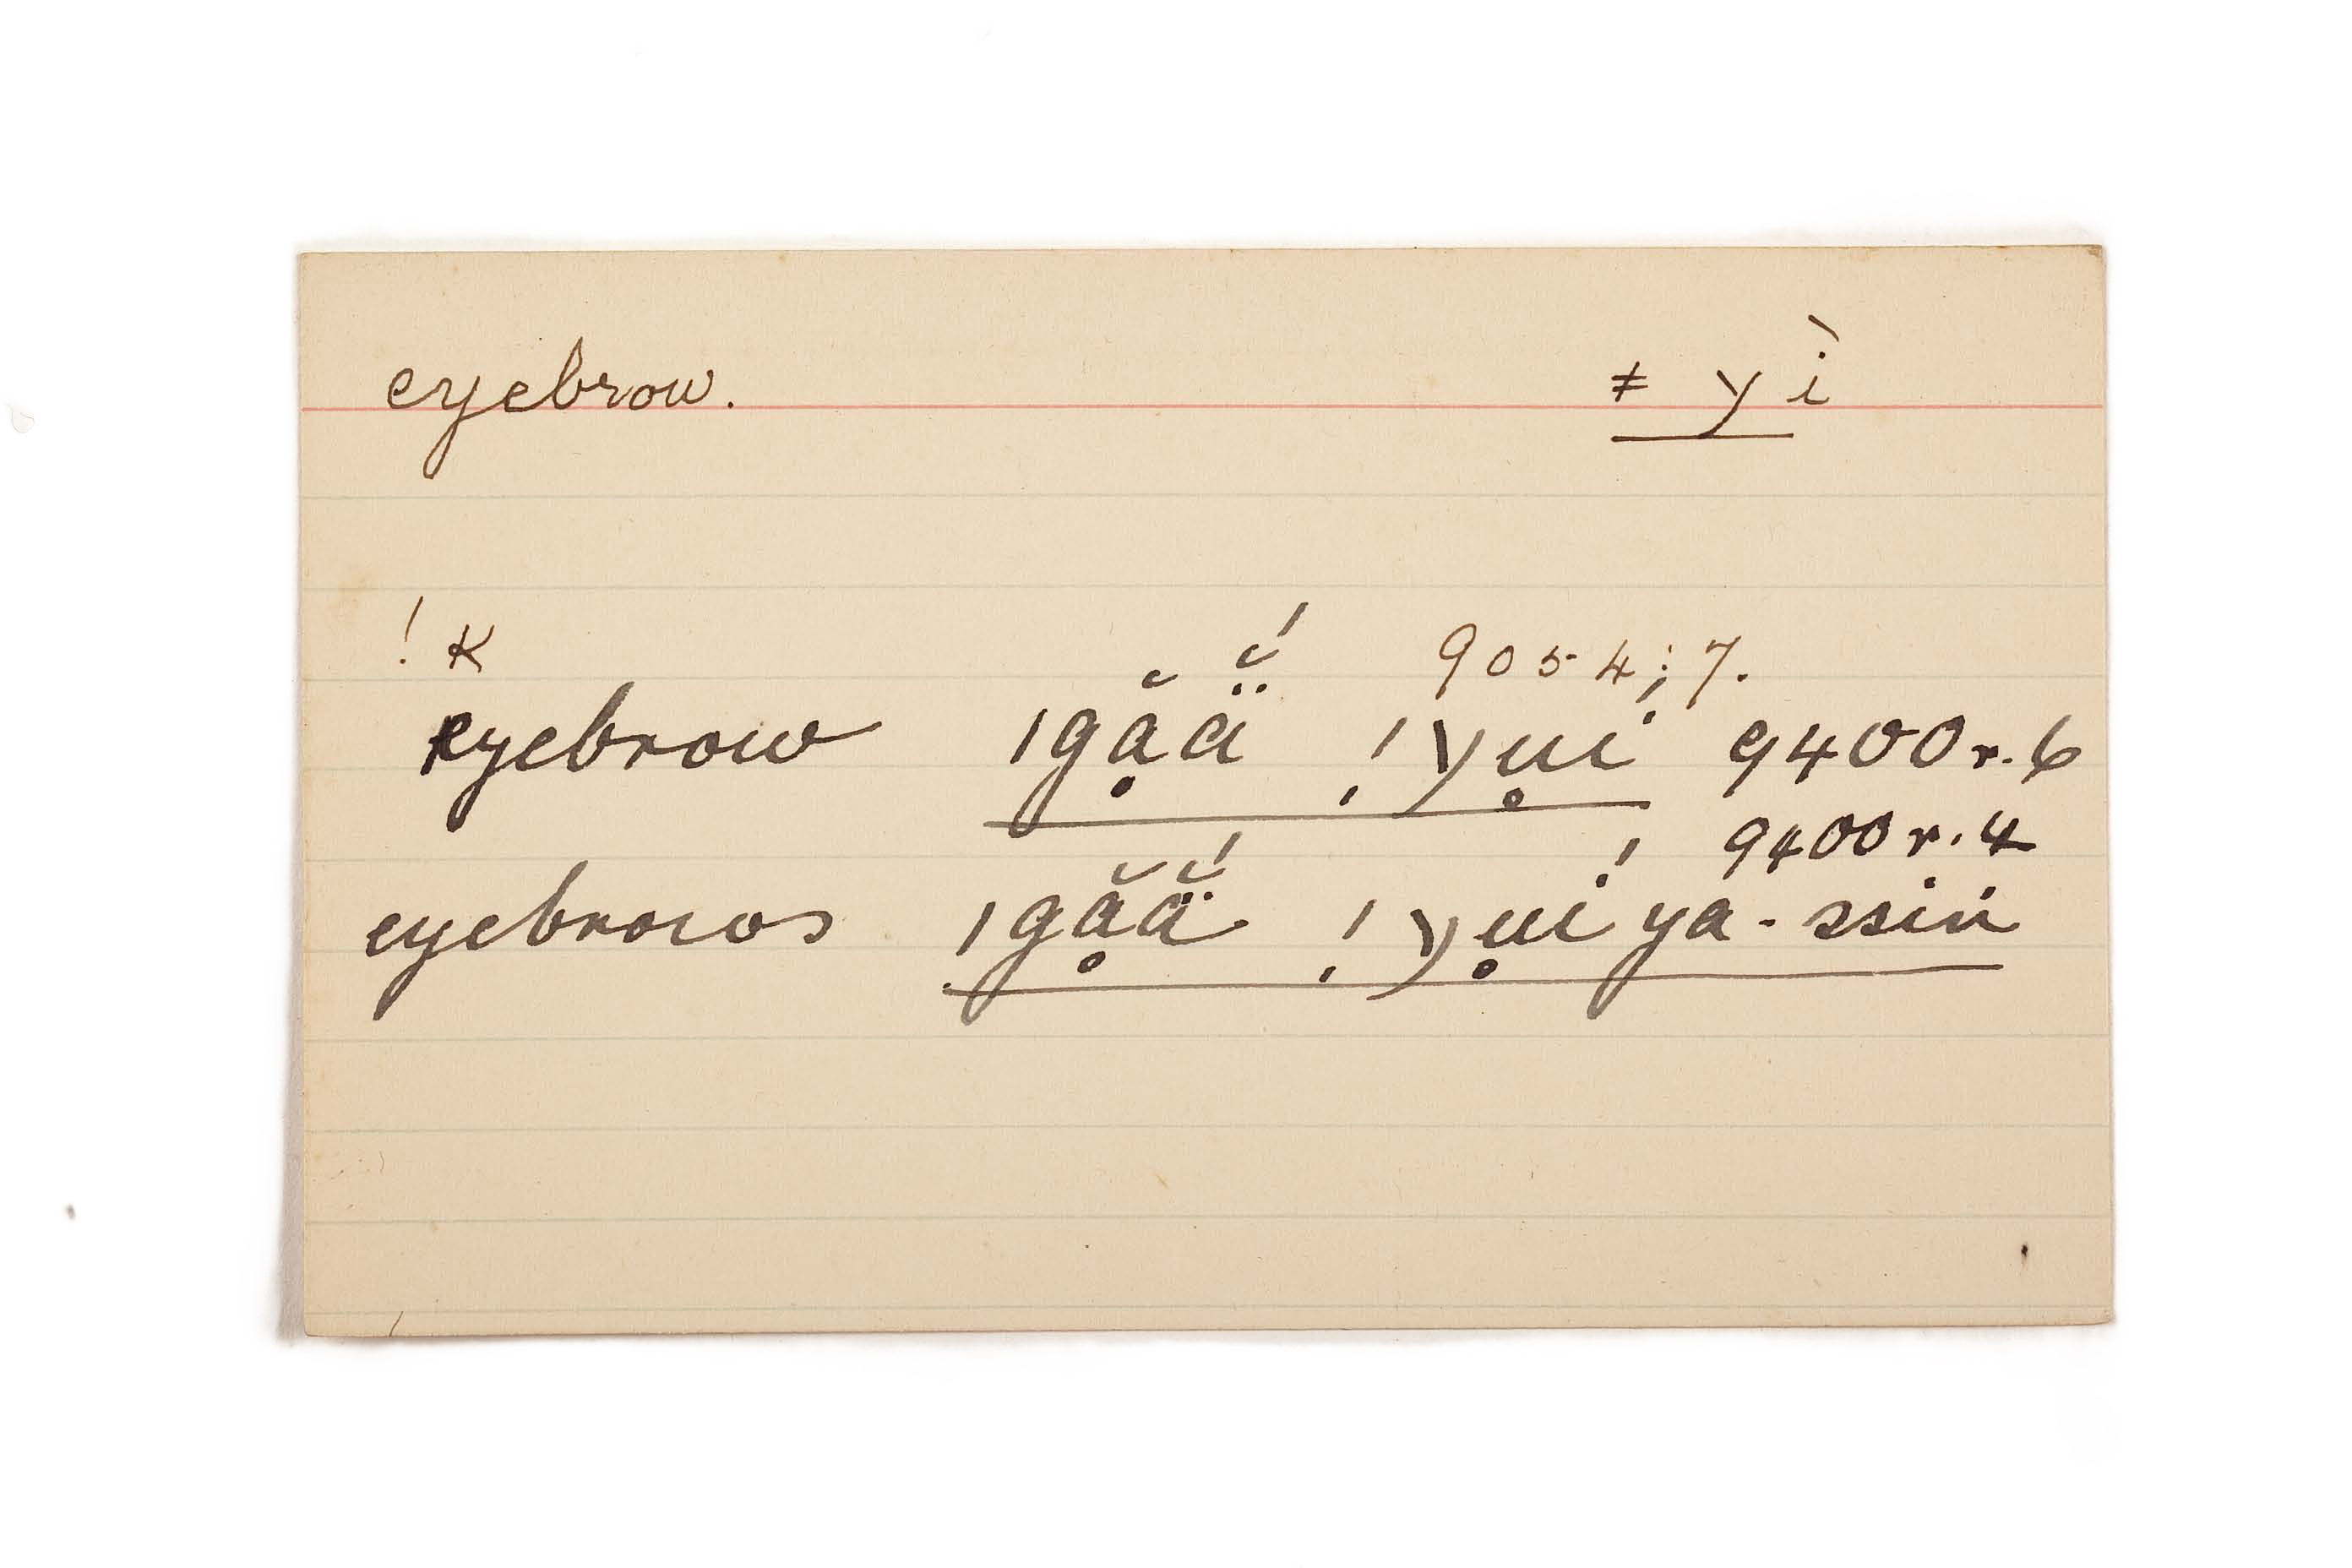 eyebrow. ǂ γì
! K 9054; 7.
eyebrow ǀgå̆ä̆́ !γu̥i 9400 r. 6
9400 r. 4
eyebrows ǀgå̆ä̆́ !γu̥í ya-ssin